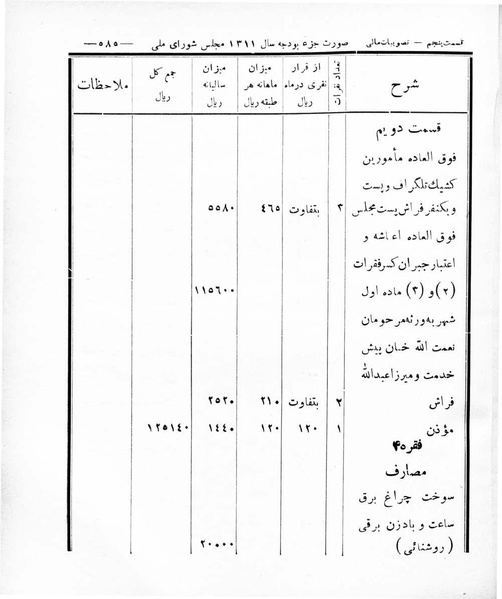 قسمت پنجم – تصویبات مالی صورت جزء بودجه سال ۱۳۱۱ مجلس شورای ملی —۵۸۵—
شرح تعداد نفرات از قرار نفری در ماه ریال میزان ماهانه هر طبقه ریال میزان سالیانه ریال جمع کل ریال ملاحظات
قسمت دویم
فوق العاده مأمورین
کشیك تلگراف و پست
و یکنفر فراش پست مجلس ۳ بتفاوت ٤٦٥ ٥٥٨٠
فوق العاده اعاشه و
اعتبار جبران کسر فقرات
(۲) و (۳) ماده اول ۱۱٥٦۰۰
شهریه ورثه مرحومان
نعمت الله خان پیش
خدمت و میرزا عبدالله
فراش ۲ بتفاوت ۲۱۰ ۲٥۲۰
مؤذن ۱ ۱۲۰ ۱۲۰ ۱٤٤۰ ۱۲٥۱٤۰
فقره ۴
مصارف
سوخت چراغ برق
ساعت و بادزن برقی
(روشنائی) ۲۰۰۰۰